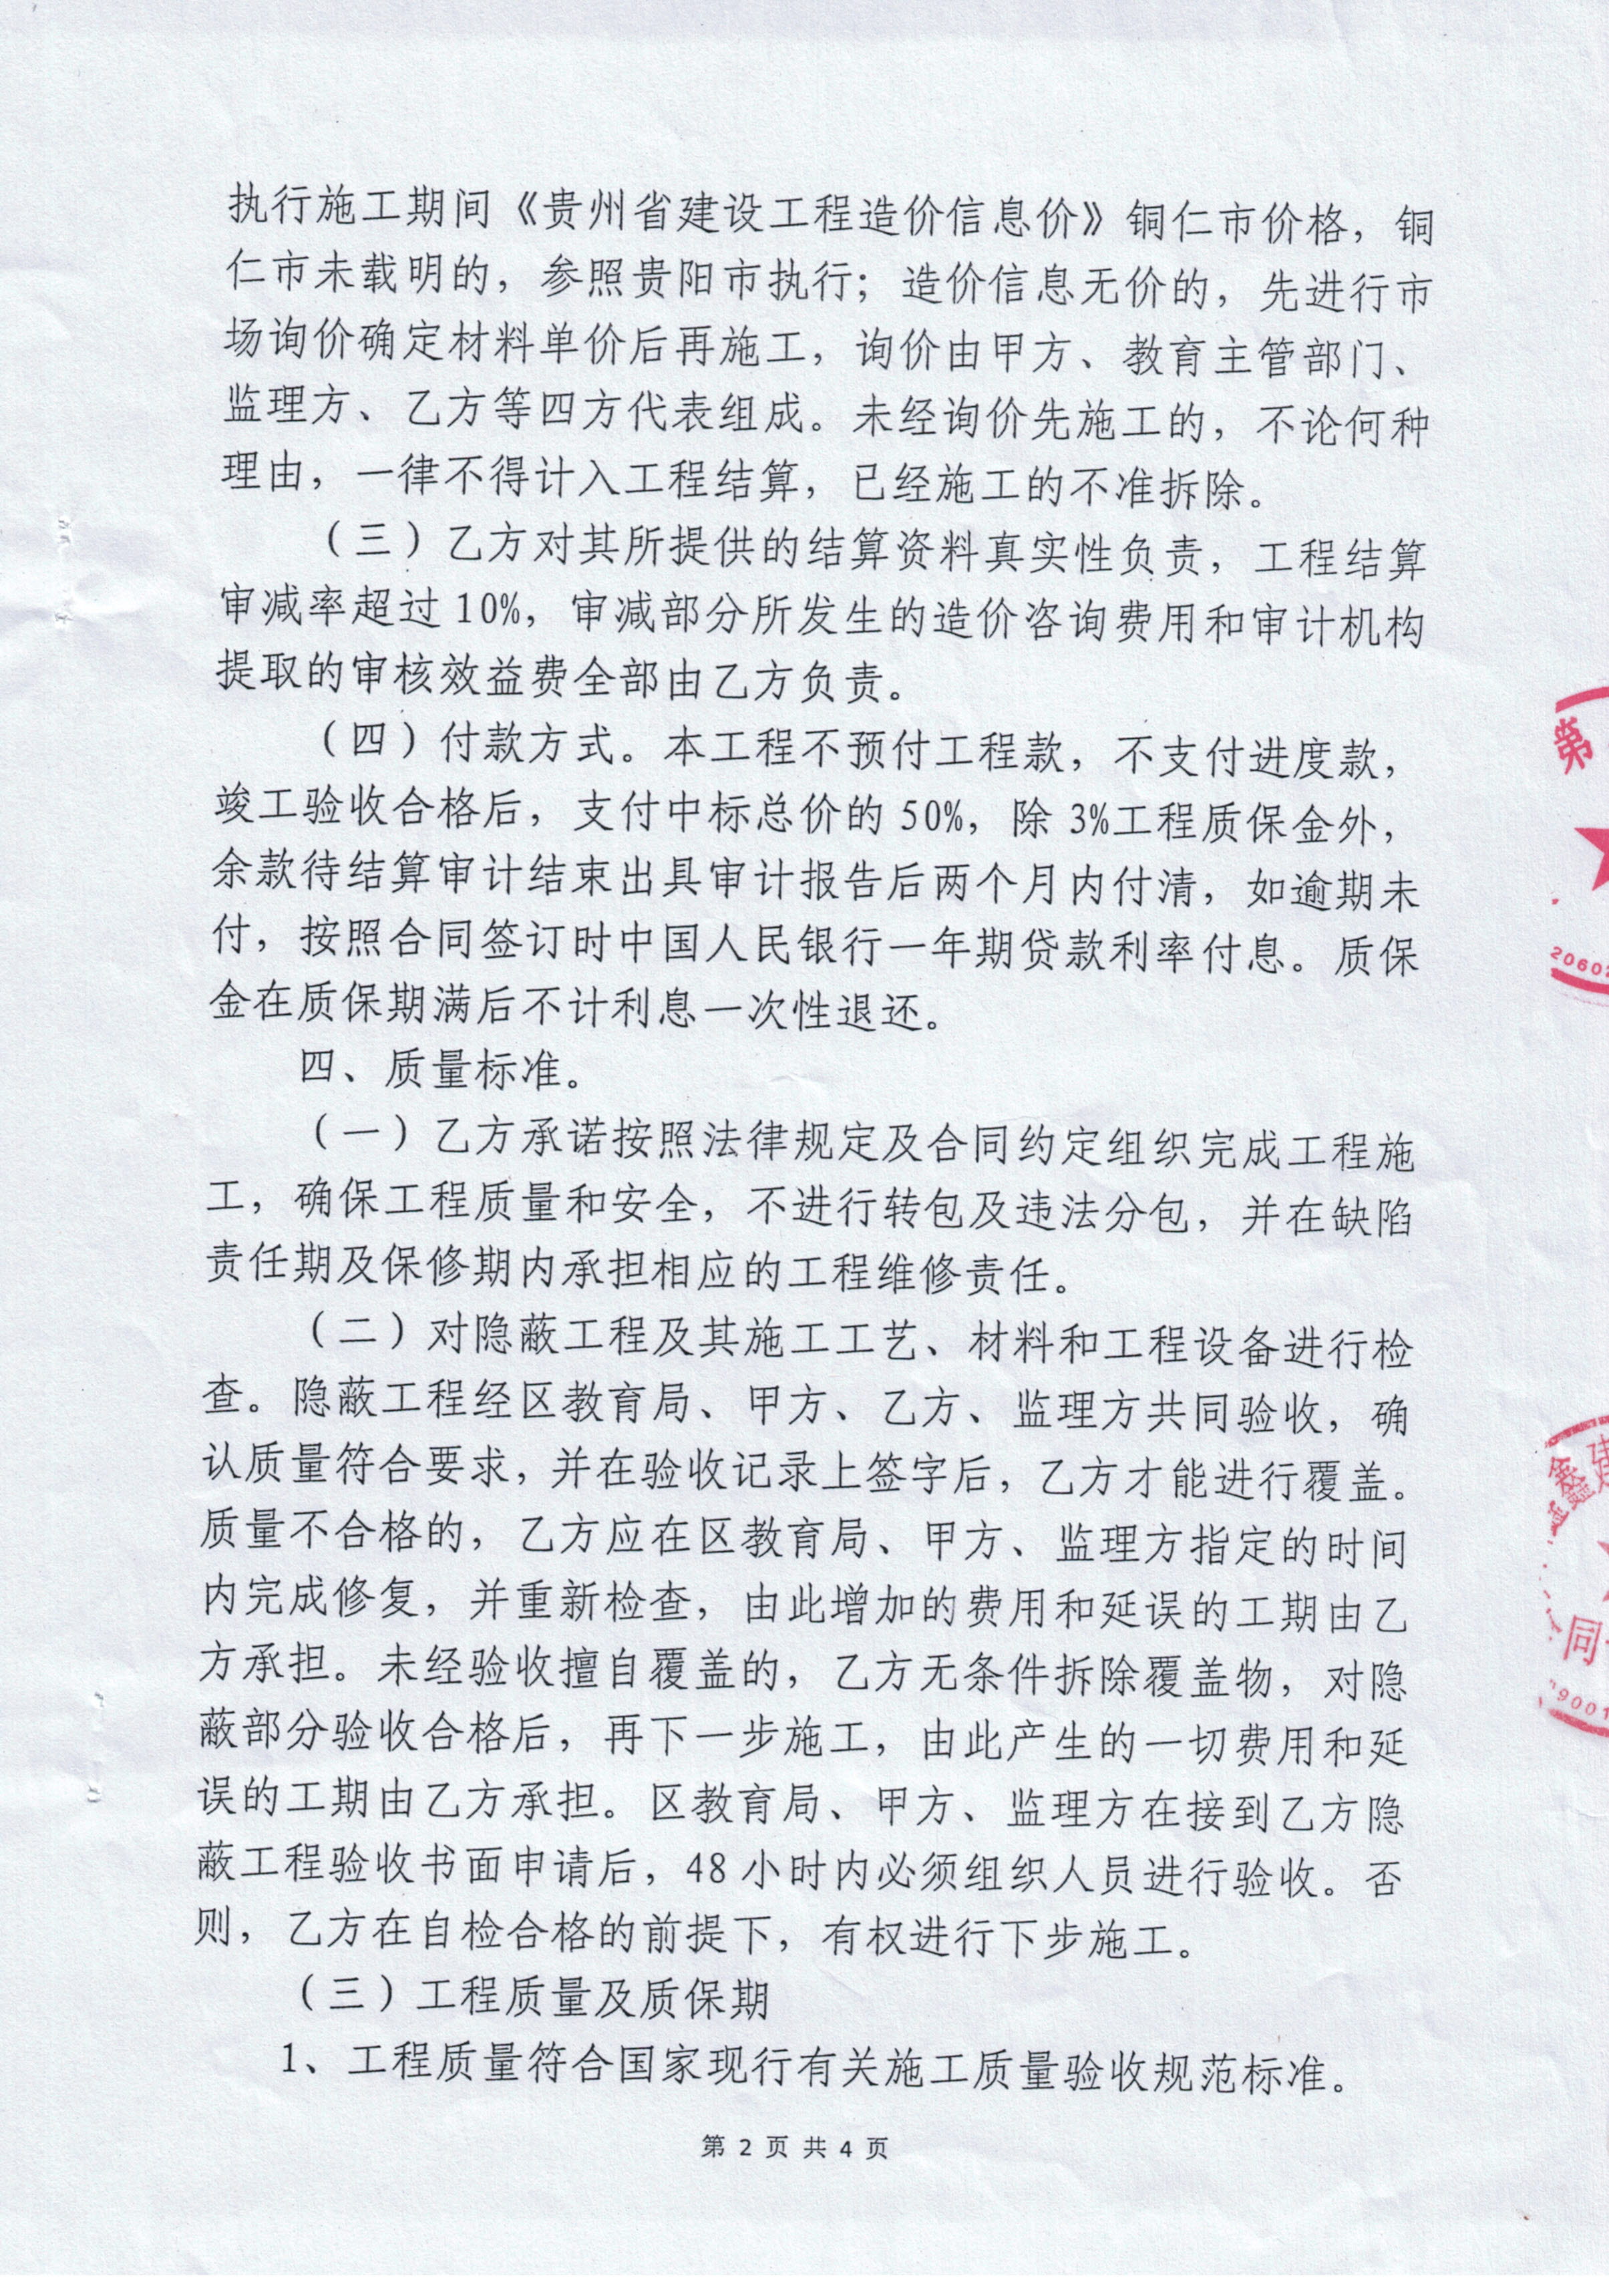 执行施工期间《贵州省建设工程造价信息价》铜仁市价格，铜
仁市未载明的，参照贵阳市执行；造价信息无价的，先进行市
场询价确定材料单价后再施工，询价由甲方、教育主管部门、
监理方、乙方等四方代表组成。未经询价先施工的，不论何种
理由，一律不得计入工程结算，已经施工的不准拆除。
（三）乙方对其所提供的结算资料真实性负责，工程结算
审减率超过10%，审减部分所发生的造价咨询费用和审计机构
提取的审核效益费全部由乙方负责。
（四）付款方式。本工程不预付工程款，不支付进度款，
竣工验收合格后，支付中标总价的50%，除3%工程质保金外，
余款待结算审计结束出具审计报告后两个月内付清，如逾期未
付，按照合同签订时中国人民银行一年期贷款利率付息。质保
金在质保期满后不计利息一次性退还。
四、质量标准。
（一）乙方承诺按照法律规定及合同约定组织完成工程施
工，确保工程质量和安全，不进行转包及违法分包，并在缺陷
责任期及保修期内承担相应的工程维修责任。
（二）对隐蔽工程及其施工工艺、材料和工程设备进行检
查。隐蔽工程经区教育局、甲方、乙方、监理方共同验收，确
认质量符合要求，并在验收记录上签字后，乙方才能进行覆盖。
质量不合格的，乙方应在区教育局、甲方、监理方指定的时间
内完成修复，并重新检查，由此增加的费用和延误的工期由乙
方承担。未经验收擅自覆盖的，乙方无条件拆除覆盖物，对隐
蔽部分验收合格后，再下一步施工，由此产生的一切费用和延
误的工期由乙方承担。区教育局、甲方、监理方在接到乙方隐
蔽工程验收书面申请后，48小时内必须组织人员进行验收。否
则，乙方在自检合格的前提下，有权进行下步施工。
（三）工程质量及质保期
1、工程质量符合国家现行有关施工质量验收规范标准。
第 2 页 共 4 页
第
2060
鑫建
同
9001